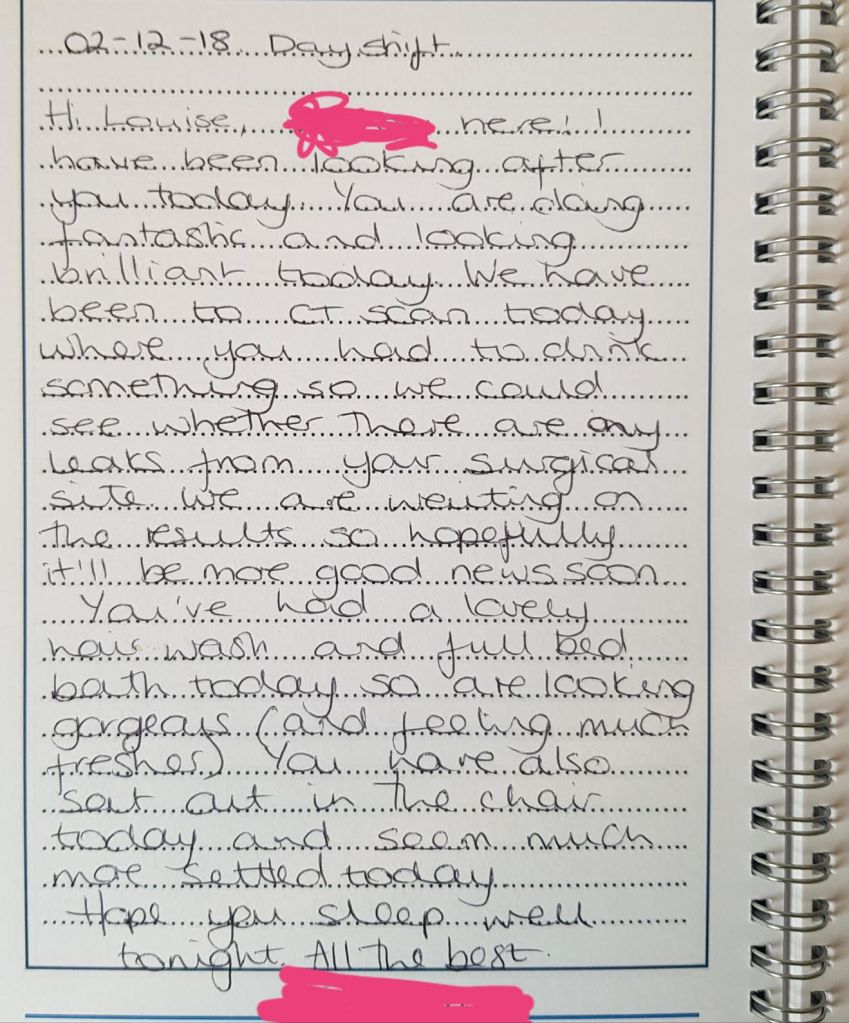 02-12-18 Day shift
Hi Louise, here! I
have been looking after
you today. You are doing
fantastic and looking
brilliant today. We have
been to CT scan today
where you had to drink
something so we could
see whether there are any
leaks from your surgical
site. We are waiting on
the results so hopefully
it'll be more good news soon.
You've had a lovely
hair wash and full bed
bath today so are looking
gorgeous (and feeling much
fresher). You have also
sat out in the chair
today and seem much
more settled today.
Hope you sleep well
tonight. All the best.